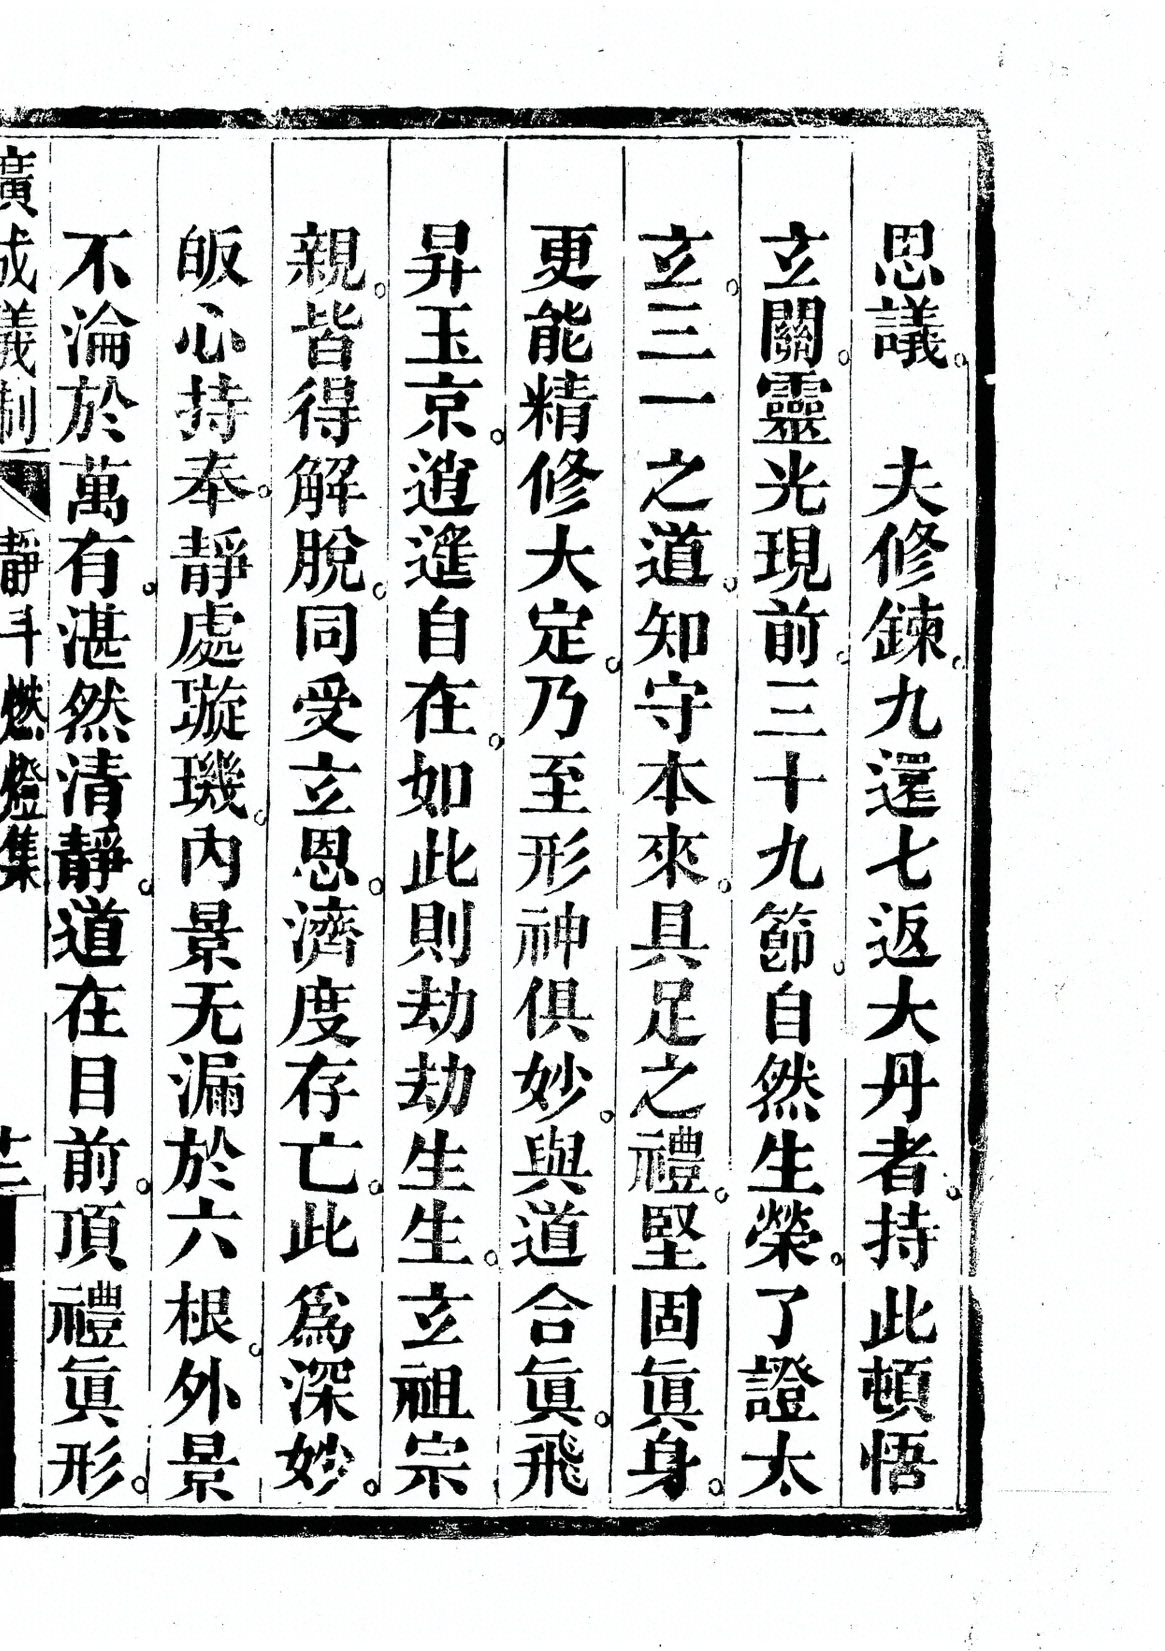 思議。　夫修鍊。九還七返大丹者。持此頓悟
玄關。靈光現前。三十九節。自然生榮。了證太
玄。三一之道。知守本來。具足之禮。堅固眞身。
更能精修大定。乃至形神俱妙。與道合眞。飛
昇玉京。逍遥自在。如此則劫劫生生。玄祖宗
親。皆得解脫。同受玄恩。濟度存亡。此爲深妙。
皈心持奉。靜處璇璣。內景无漏於六根。外景
不淪於萬有。湛然清靜。道在目前。頂禮眞形。
廣成儀制　靜斗燃燈集　廿二